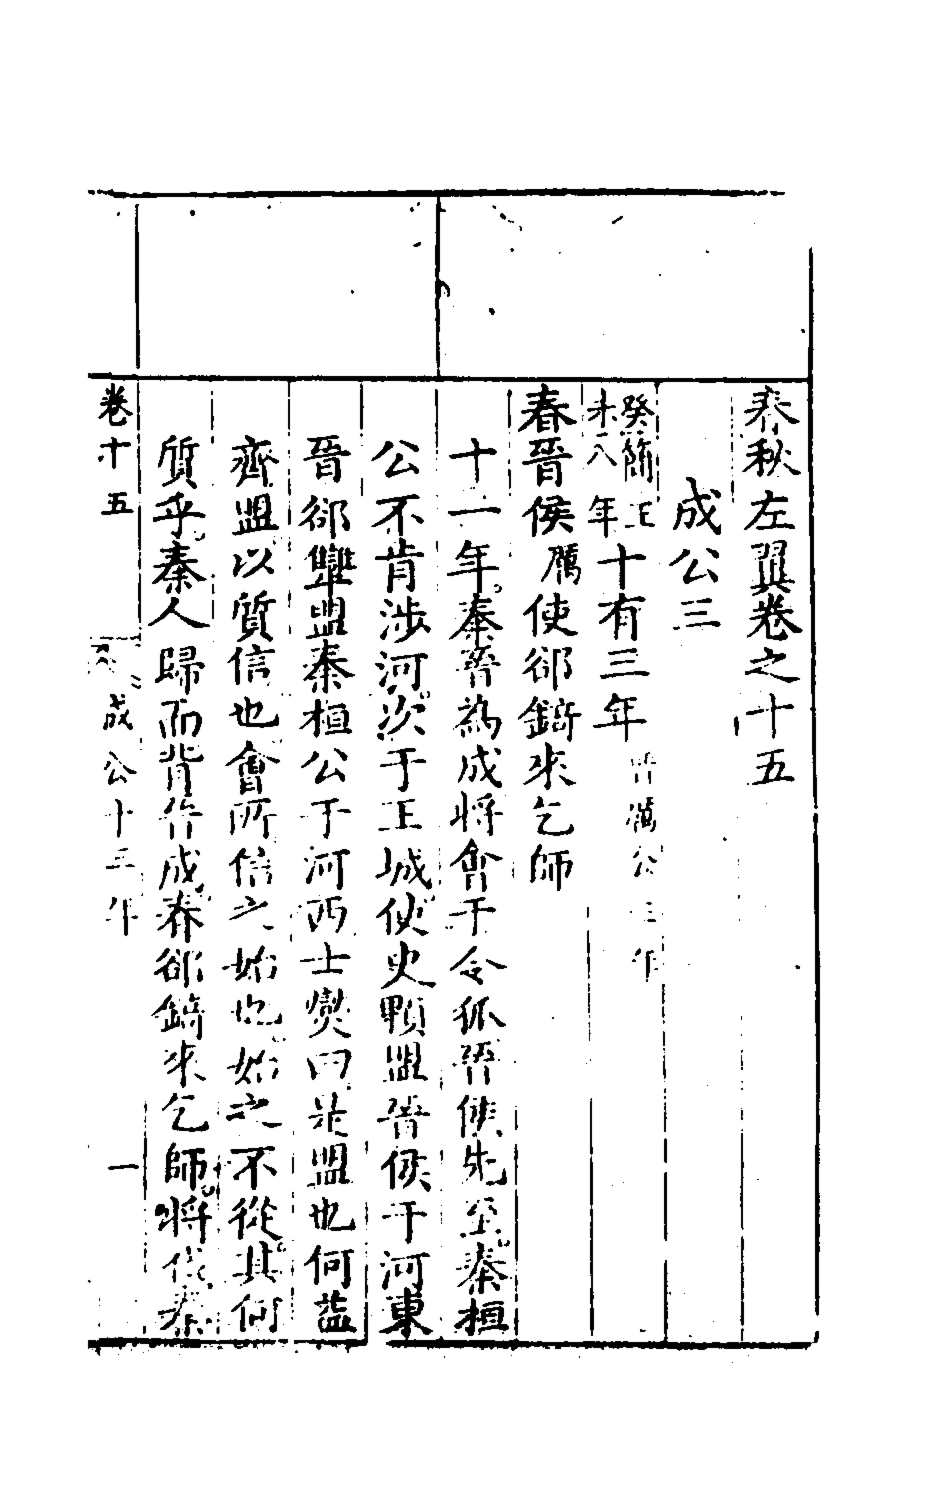 春秋左翼卷之十五
成公三
癸簡王
未八年十有三年晉厲公三年
春晉侯厲使郤錡來乞師
十一年秦晉為成將會于令狐晉侯先至秦桓
公不肯涉河次于王城使史顆盟晉侯于河東
晉郤犫盟秦桓公于河西士燮曰是盟也何益
齊盟以質信也會所信之始也始之不從其何
質乎秦人歸而背晉成春郤錡來乞師將伐秦
卷十五
成公十三年
一